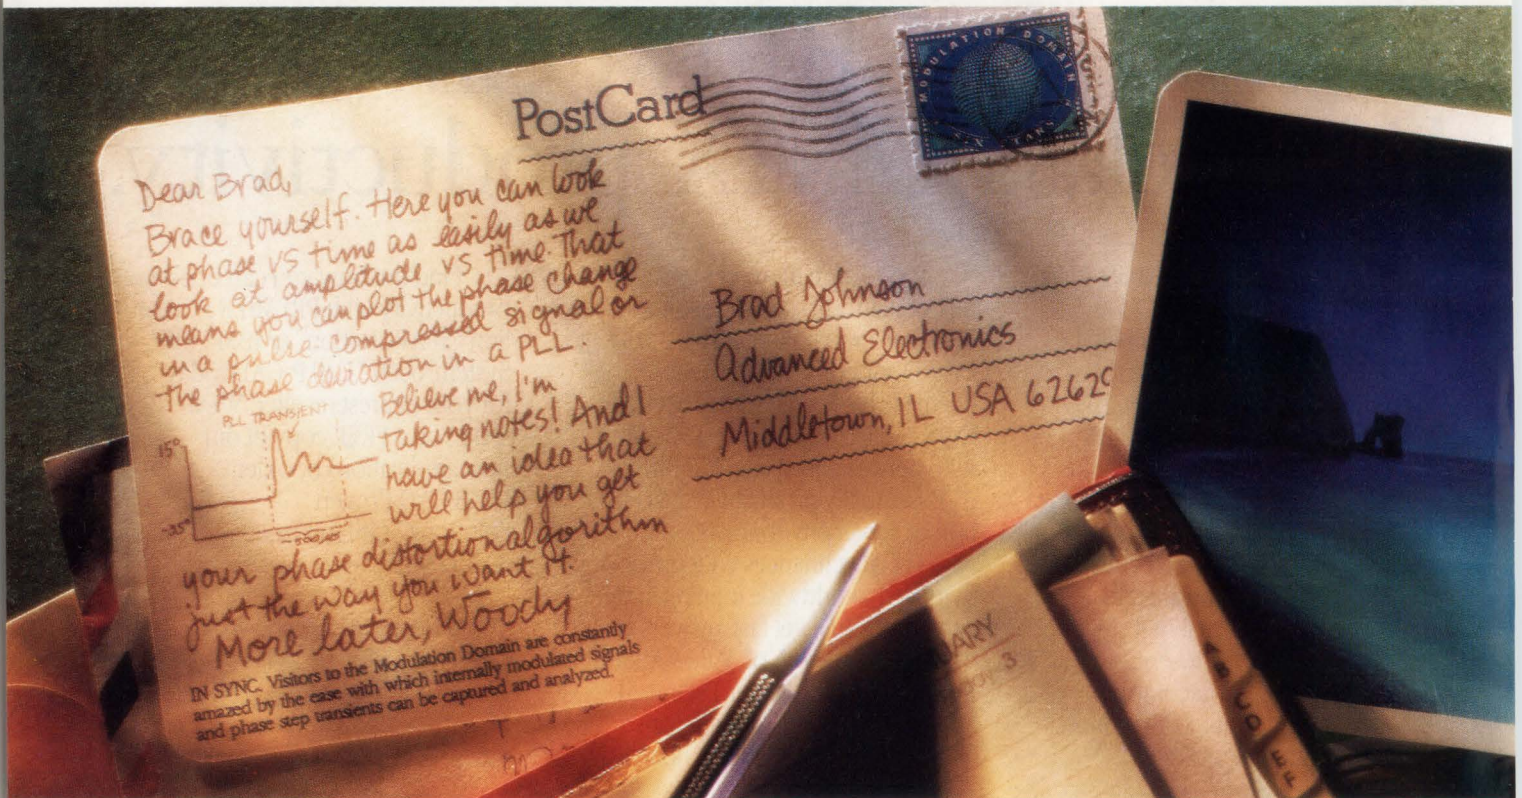 PostCard
MODULATION DOMAIN
SIX YEARS
Dear Brad,
Brace yourself. Here you can look
at phase vs time as easily as we
look at amplitude vs time. That
means you can plot the phase change
in a pulse compressed signal or
the phase deviation in a PLL.
Believe me, I'm
taking notes! And I
have an idea that
will help you get
your phase distortion algorithm
just the way you want it.
More later, Woody
PLL TRANSIENT
15°
-35°
IN SYNC. Visitors to the Modulation Domain are constantly
amazed by the ease with which internally modulated signals
and phase step transients can be captured and analyzed.
Brad Johnson
Advanced Electronics
Middletown, IL USA 6262
UARY
3
A B C D E F